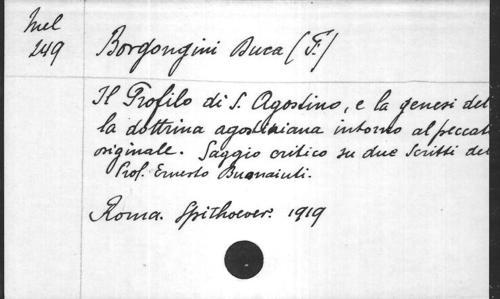 Mel
249
Borgongini Duca (F.)
Il Profilo di S. Agostino, e la genesi del
la dottrina agostiniana intorno al peccato
originale. Saggio critico su due scritti del
Prof. Ernesto Buonaiuti.
Roma. Spithoever. 1919